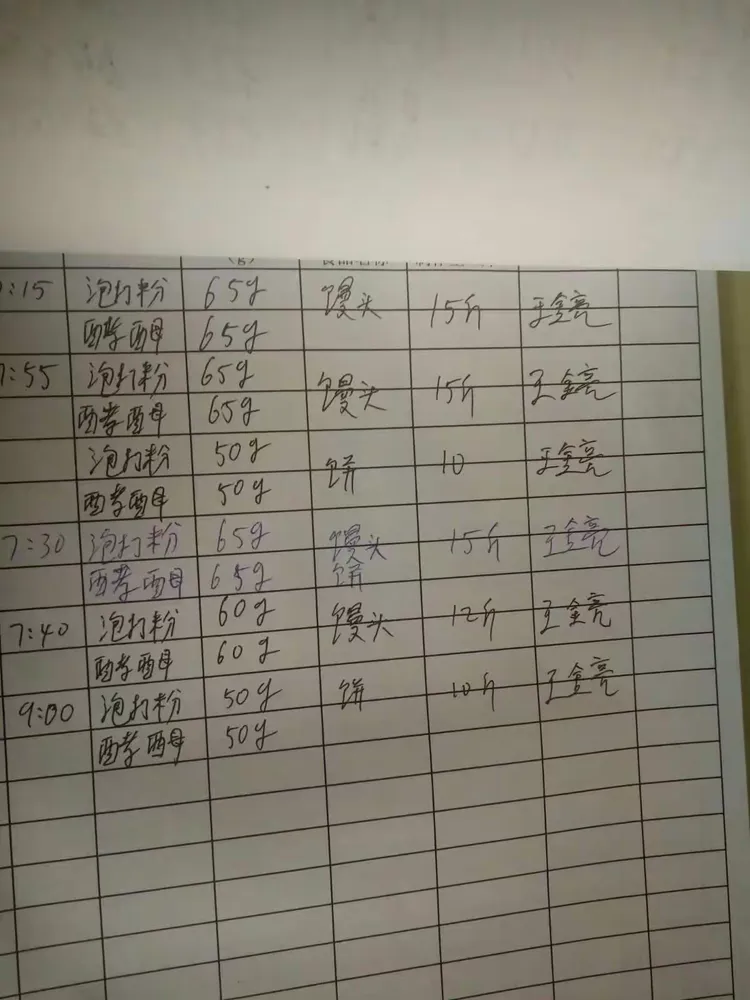 (g)
:15 泡打粉 65g 馒头 15斤 王金亮
酵母 65g
7:55 泡打粉 65g 馒头 15斤 王金亮
酵母 65g
泡打粉 50g 饼 10 王金亮
酵母 50g
7:30 泡打粉 65g 馒头 15斤 王金亮
酵母 65g 饼
7:40 泡打粉 60g 馒头 12斤 王金亮
酵母 60g
9:00 泡打粉 50g 饼 10斤 王金亮
酵母 50g